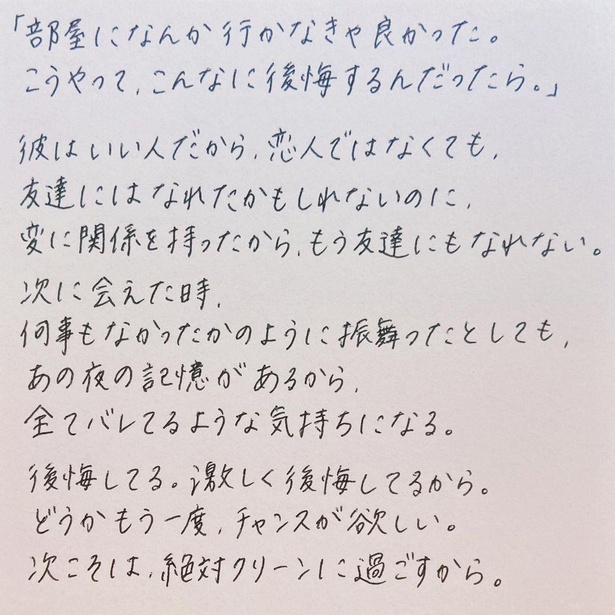 「部屋になんか行かなきゃ良かった。
こうやって、こんなに後悔するんだったら。」
彼はいい人だから、恋人ではなくても、
友達にはなれたかもしれないのに、
変に関係を持ったから、もう友達にもなれない。
次に会えた時、
何事もなかったかのように振舞ったとしても、
あの夜の記憶があるから、
全てバレてるような気持ちになる。
後悔してる。激しく後悔してるから。
どうかもう一度、チャンスが欲しい。
次こそは、絶対クリーンに過ごすから。